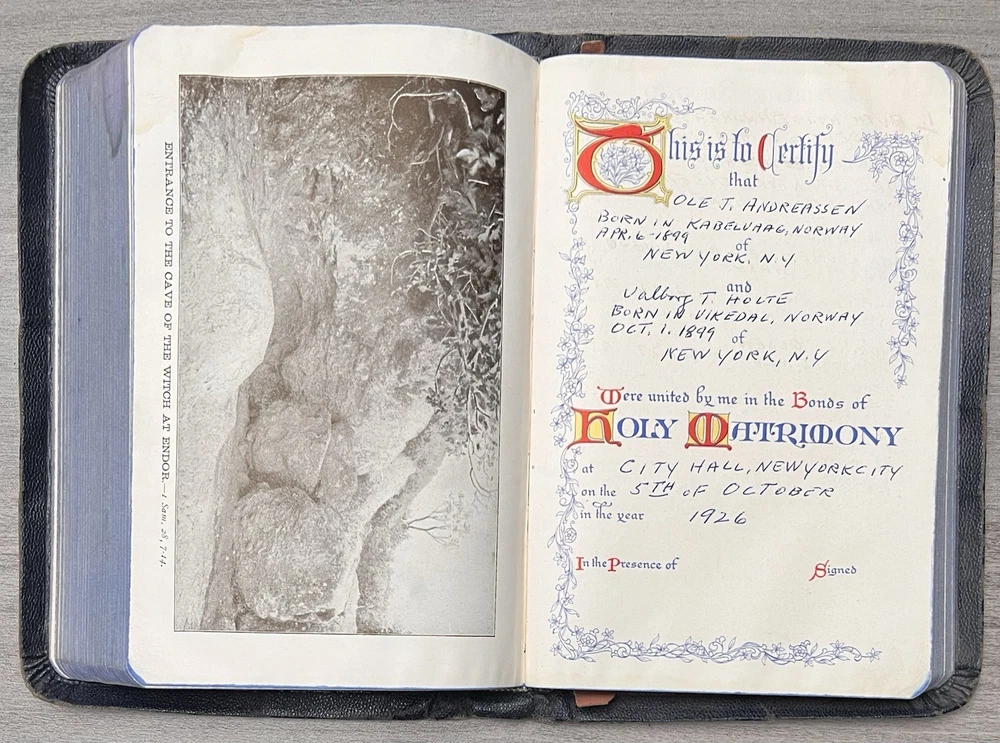 ENTRANCE TO THE CAVE OF THE WITCH AT ENDOR.—1 Sam. 28, 7-14.
This is to Certify
that
OLE J. ANDREASSEN
BORN IN KABELVAAG, NORWAY
APR. 6-1899
of
NEW YORK. N.Y
and
Valborg T. HOLTE
BORN IN VIKEDAL, NORWAY
OCT. 1. 1899
of
NEW YORK, N.Y
Were united by me in the Bonds of
HOLY MATRIMONY
at CITY HALL, NEW YORK CITY
on the 5TH OF OCTOBER
in the year 1926
In the Presence of Signed